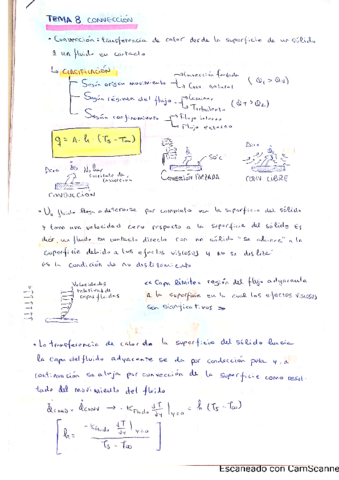 TEMA 8 CONVECCIÓN
• Convección: transferencia de calor desde la superficie de un sólido
a un fluido en contacto
CLASIFICACIÓN
Según origen movimiento
Convección forzada
Conv. natural
Según régimen del flujo
Laminar
Turbulento
Según confinamiento
Flujo interno
Flujo externo
q = A · h · (Ts - T∞)
50°C
CONDUCCIÓN
CONVECCIÓN FORZADA
CONV. LIBRE
• Un fluido llega a detenerse por completo en la superficie del sólido
y tiene una velocidad cero respecto a la superficie del sólido es
decir, un fluido en contacto directo con un sólido "se adhiere" a la
superficie debido a los efectos viscosos y no se desliza
es la condición de no deslizamiento
Velocidades
relativas de
capas fluidas
Capa límite: región del flujo adyacente
a la superficie en la cual los efectos viscosos
son significativos
• La transferencia de calor de la superficie del sólido hacia
la capa del fluido adyacente se da por conducción pura y a
continuación se aleja por convección de la superficie como resul-
tado del movimiento del fluido
q̇cond = q̇conv → -Kfluido dT/dy |y=0 = h (Ts - T∞)
h = -Kfluido dT/dy |y=0 / Ts - T∞
Escaneado con CamScanne